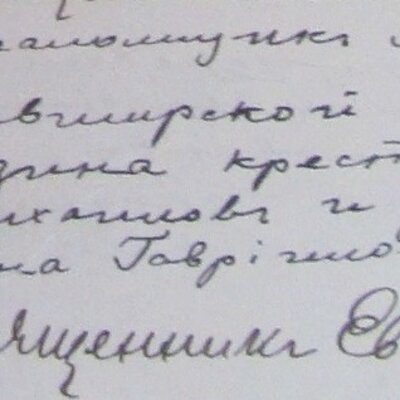 авгирской
дина крест
ихаиловъ и
на Гаврiило
ященникъ Ев